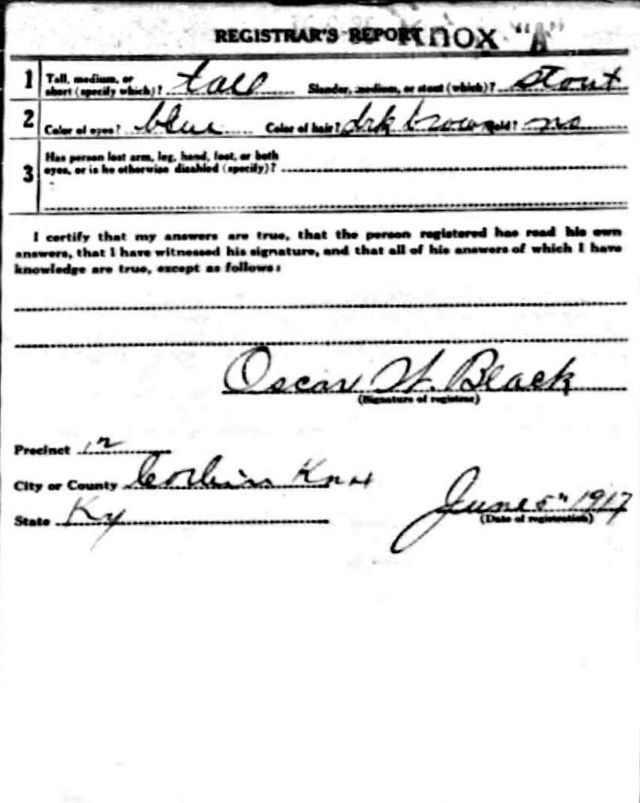 REGISTRAR'S REPORT KNOX "A"
1 Tall, medium, or short (specify which)? tall Slender, medium, or stout (which)? stout
2 Color of eyes? blue Color of hair? drk brown Bald? no
3 Has person lost arm, leg, hand, foot, or both
eyes, or is he otherwise disabled (specify)?
I certify that my answers are true, that the person registered has read his own
answers, that I have witnessed his signature, and that all of his answers of which I have
knowledge are true, except as follows:
Oscar W. Black
(Signature of registrar)
Precinct 12
City or County Corbin Knox
State Ky
June 5" 1917
(Date of registration)